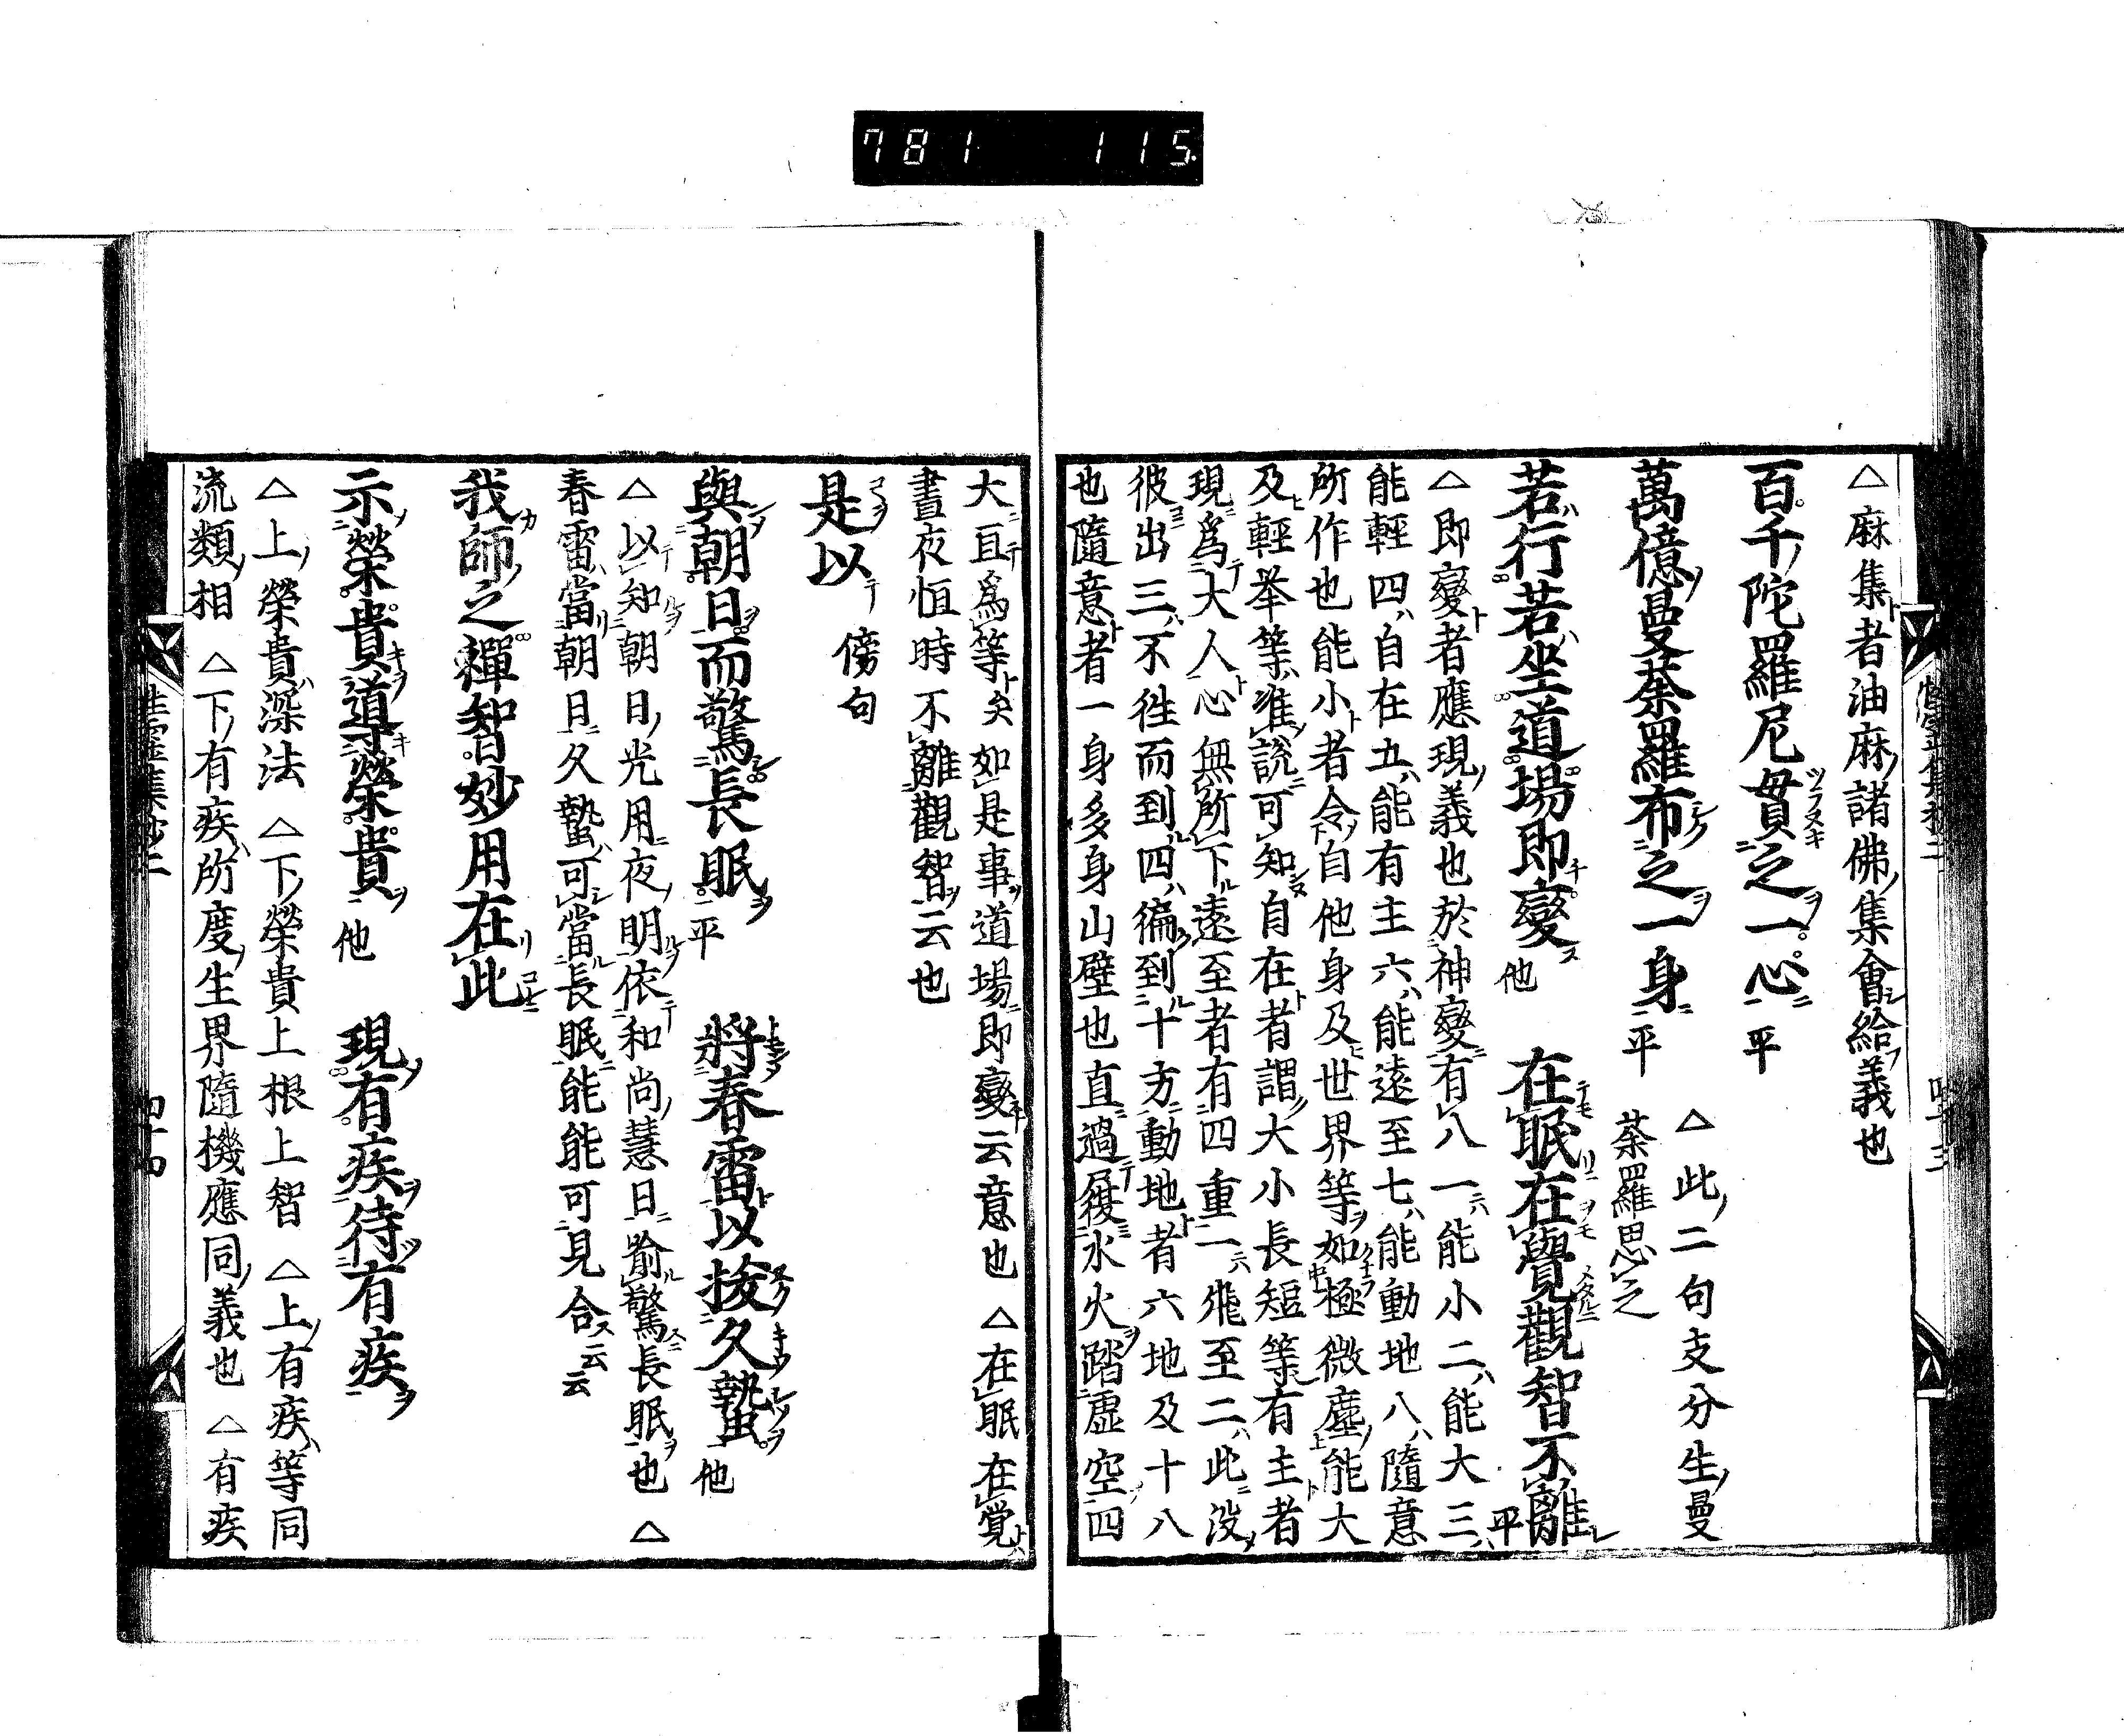 781 115
△麻集者油麻諸佛集會給義也
百千陀羅尼貫之一心 平
萬億曼荼羅布之一身 平 △此二句支分生曼
荼羅思之
若行若坐道場即變 他 在眠在覺觀智不離 平
△即變者應現義也於神變有八一能小二能大三
能輕四自在五能有主六能遠至七能動地八隨意
所作也能小者令自他身及世界等如極微塵能大
及輕举等准說可知自在者謂大小長短等有主者
現爲大人心無所下遠至者有四重一飛至二此没
彼出三不徃而到四徧到十方動地者六地及十八
也隨意者一身多身山壁也直過履水火踏虛空四
大互爲等矣如是事道場即變云意也 △在眠在覚
晝夜恒時不離觀智云也
是以 傍句
與朝日而驚長眠 平 將春雷以拔久蟄 他
△以知朝日光用夜明依和尚慧日喻驚長眠也 △
春雷當朝日久蟄可當長眠能能可見合云云
我師之禪智妙用在此
示榮貴導榮貴 他 現有疾待有疾
△上榮貴深法 △下榮貴上根上智 △上有疾等同
流類相 △下有疾所度生界隨機應同義也 △有疾